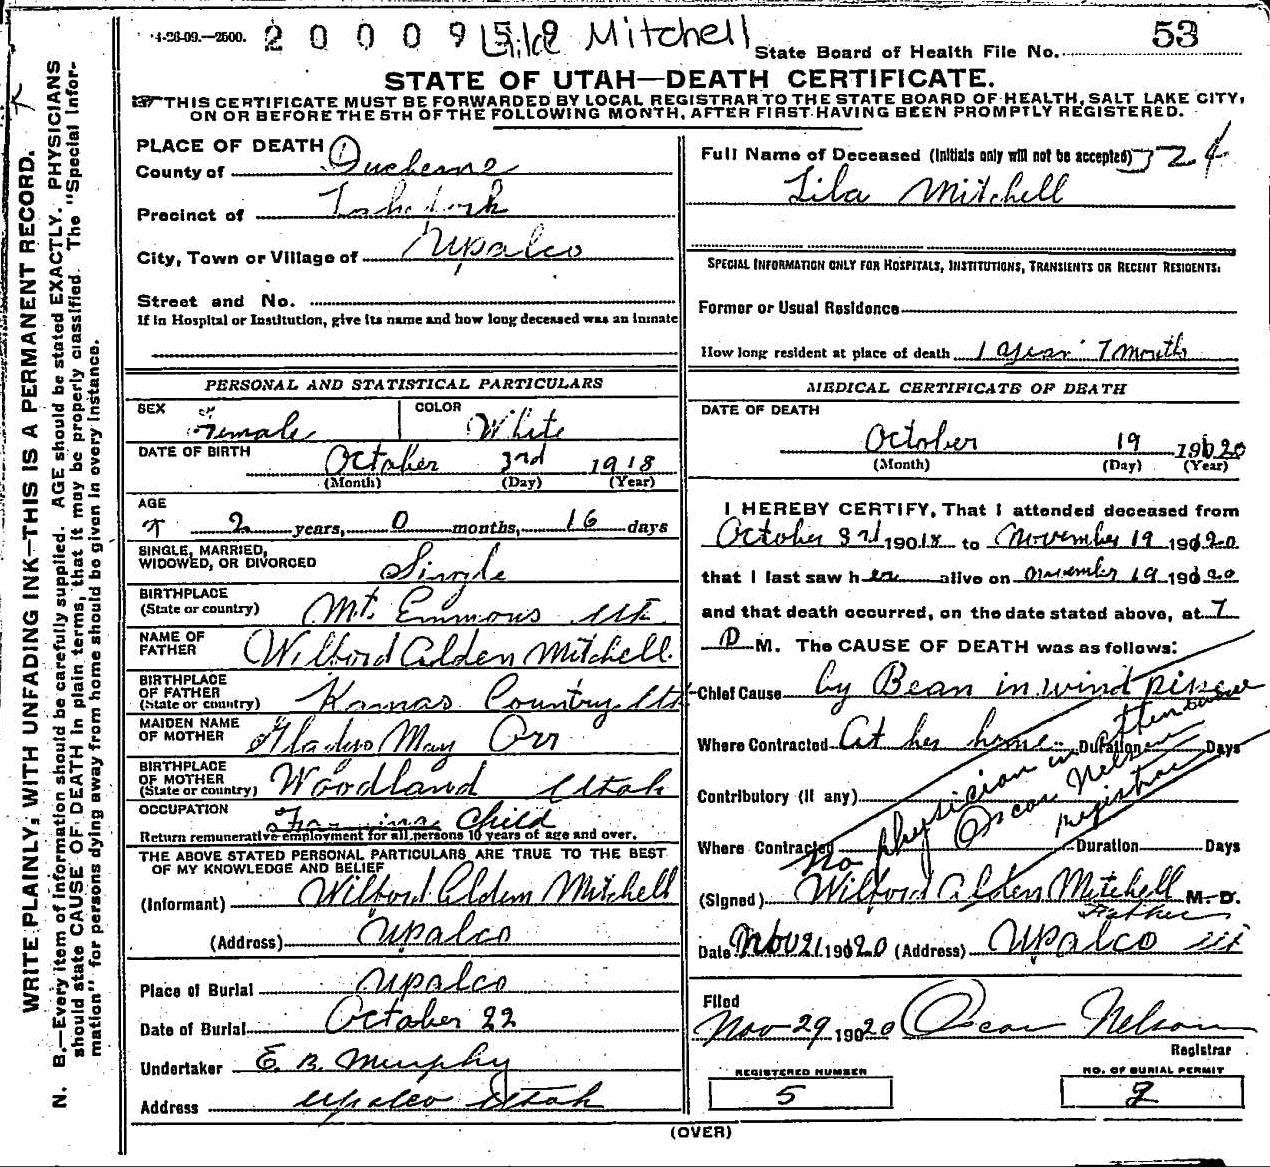 4-26-09.—2500. 2 0 0 0 9 5 9 Lila Mitchell State Board of Health File No. 53
STATE OF UTAH—DEATH CERTIFICATE.
THIS CERTIFICATE MUST BE FORWARDED BY LOCAL REGISTRAR TO THE STATE BOARD OF HEALTH, SALT LAKE CITY,
ON OR BEFORE THE 5TH OF THE FOLLOWING MONTH, AFTER FIRST HAVING BEEN PROMPTLY REGISTERED.
WRITE PLAINLY, WITH UNFADING INK—THIS IS A PERMANENT RECORD.
N. B.—Every item of information should be carefully supplied. AGE should be stated EXACTLY. PHYSICIANS
should state CAUSE OF DEATH in plain terms, that it may be properly classified. The "Special Infor-
mation" for persons dying away from home should be given in every instance.
PLACE OF DEATH
County of Duchesne
Precinct of
City, Town or Village of Upalco
Street and No.
If in Hospital or Institution, give its name and how long deceased was an inmate
PERSONAL AND STATISTICAL PARTICULARS
SEX Female COLOR White
DATE OF BIRTH October 3rd 1918
(Month) (Day) (Year)
AGE
2 years, 0 months, 16 days
SINGLE, MARRIED,
WIDOWED, OR DIVORCED Single
BIRTHPLACE
(State or country) Mt. Emmons Ut.
NAME OF
FATHER Wilford Alden Mitchell
BIRTHPLACE
OF FATHER
(State or country) Kamas Country Ut
MAIDEN NAME
OF MOTHER Gladys May Orr
BIRTHPLACE
OF MOTHER
(State or country) Woodland Utah
OCCUPATION Child
Return remunerative employment for all persons 10 years of age and over.
THE ABOVE STATED PERSONAL PARTICULARS ARE TRUE TO THE BEST
OF MY KNOWLEDGE AND BELIEF
(Informant) Wilford Alden Mitchell
(Address) Upalco
Place of Burial Upalco
Date of Burial October 22
Undertaker E. B. Murphy
Address Upalco Utah
Full Name of Deceased (Initials only will not be accepted) 324
Lila Mitchell
SPECIAL INFORMATION ONLY FOR HOSPITALS, INSTITUTIONS, TRANSIENTS OR RECENT RESIDENTS.
Former or Usual Residence
How long resident at place of death 1 year 7 months
MEDICAL CERTIFICATE OF DEATH
DATE OF DEATH
October 19 1920
(Month) (Day) (Year)
I HEREBY CERTIFY, That I attended deceased from
October 3rd 1918 to November 19 1920
that I last saw her alive on November 19 1920
and that death occurred, on the date stated above, at 7
P M. The CAUSE OF DEATH was as follows:
Chief Cause by Bean in wind pipe
Where Contracted At her home Duration Days
Contributory (if any)
Where Contracted Duration Days
No physician in attendance
Oscar Nelson
registrar
(Signed) Wilford Alden Mitchell M. D.
Father
Date Nov 21 1920 (Address) Upalco Ut
Filed
Nov 29 1920 Oscar Nelson
Registrar
REGISTERED NUMBER
5
NO. OF BURIAL PERMIT
2
(OVER)